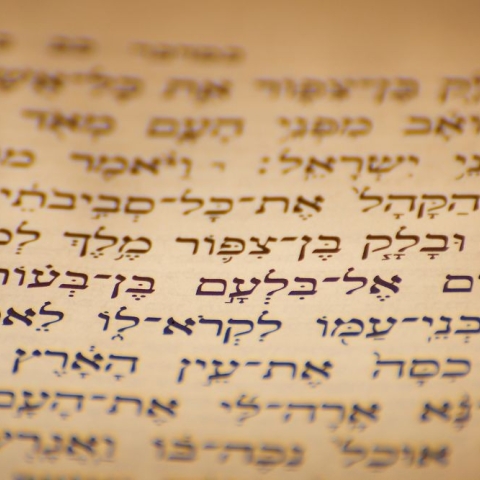 בָּלָק בֶּן־צִפּוֹר אֵת כׇּל־אֲשֶׁ
מוֹאָב מִפְּנֵי הָעָם מְאֹד
בְּנֵי יִשְׂרָאֵל׃ וַיֹּאמֶר
הַקָּהָל אֶת־כׇּל־סְבִיבֹתֵי
וּבָלָק בֶּן־צִפּוֹר מֶלֶךְ
ים אֶל־בִּלְעָם בֶּן־בְּעוֹר
בְּנֵי־עַמּוֹ לִקְרֹא־לוֹ לֵאמ
כִסָּה אֶת־עֵין הָאָרֶץ
נָּא אָרָה־לִּי אֶת־הָעָם
אוּכַל נַכֶּה־בּוֹ וַאֲגָרְ